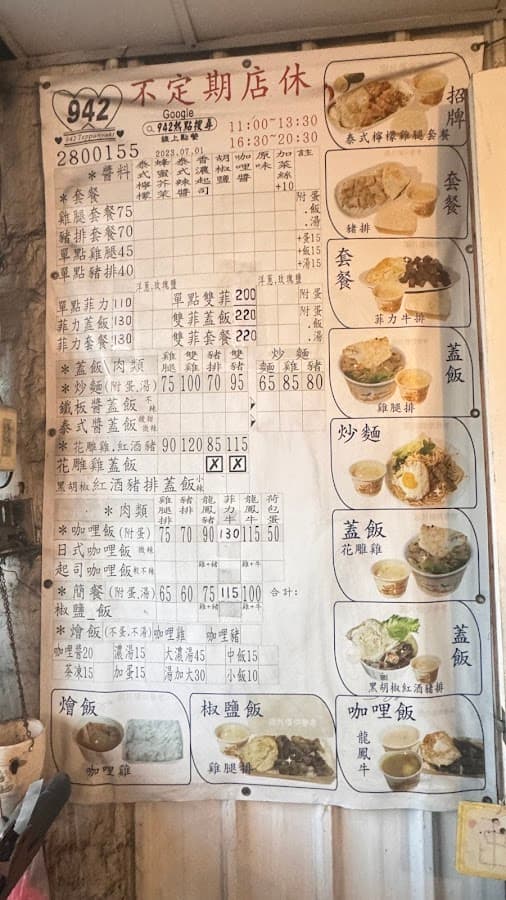 942
942 Teppanyaki
不定期店休
Google
942熱點搜尋
線上點餐
11:00~13:30
16:30~20:30
2800155
2023.07.01
*醬料 泰式檸檬 蜂蜜芥茉 泰式辣醬 香濃起司 胡椒鹽 咖哩醬 原味 加菜絲+10 註
*套餐
雞腿套餐75
豬排套餐70
單點雞腿45
單點豬排40
附蛋.飯.湯
+蛋15
+飯15
+湯15
洋蔥,玫瑰鹽 洋蔥,玫瑰鹽
單點菲力110 單點雙菲200
菲力蓋飯130 雙菲蓋飯220
菲力套餐130 雙菲套餐220
附蛋.飯.湯
*蓋飯/肉類 雞腿 雙雞 豬排 雙豬 炒麵
*炒麵(附蛋,湯) 75 100 70 95 麵65 雞85 豬80
鐵板醬蓋飯 不辣
泰式醬蓋飯 酸甜微辣
*花雕雞,紅酒豬 90 120 85 115
花雕雞蓋飯
黑胡椒紅酒豬排蓋飯 小辣
*肉類 雞腿排 豬排 龍鳳豬 菲力牛 龍鳳牛 荷包蛋
*咖哩飯(附蛋) 75 70 90 130 115 50
日式咖哩飯 微辣
起司咖哩飯 較不辣 雞+豬 雞+牛
*簡餐(附蛋,湯) 65 60 75 115 100 合計:
椒鹽_飯 雞+豬 雞+牛
*燴飯(不蛋,不湯) 咖哩雞 咖哩豬
咖哩醬20 濃湯15 大濃湯45 中飯15
茶凍15 加蛋15 湯加大30 小飯10
招牌
泰式檸檬雞腿套餐
套餐
豬排
套餐
菲力牛排
蓋飯
雞腿排
炒麵
蓋飯
花雕雞
蓋飯
黑胡椒紅酒豬排
燴飯
咖哩雞
椒鹽飯
雞腿排
咖哩飯
龍鳳牛